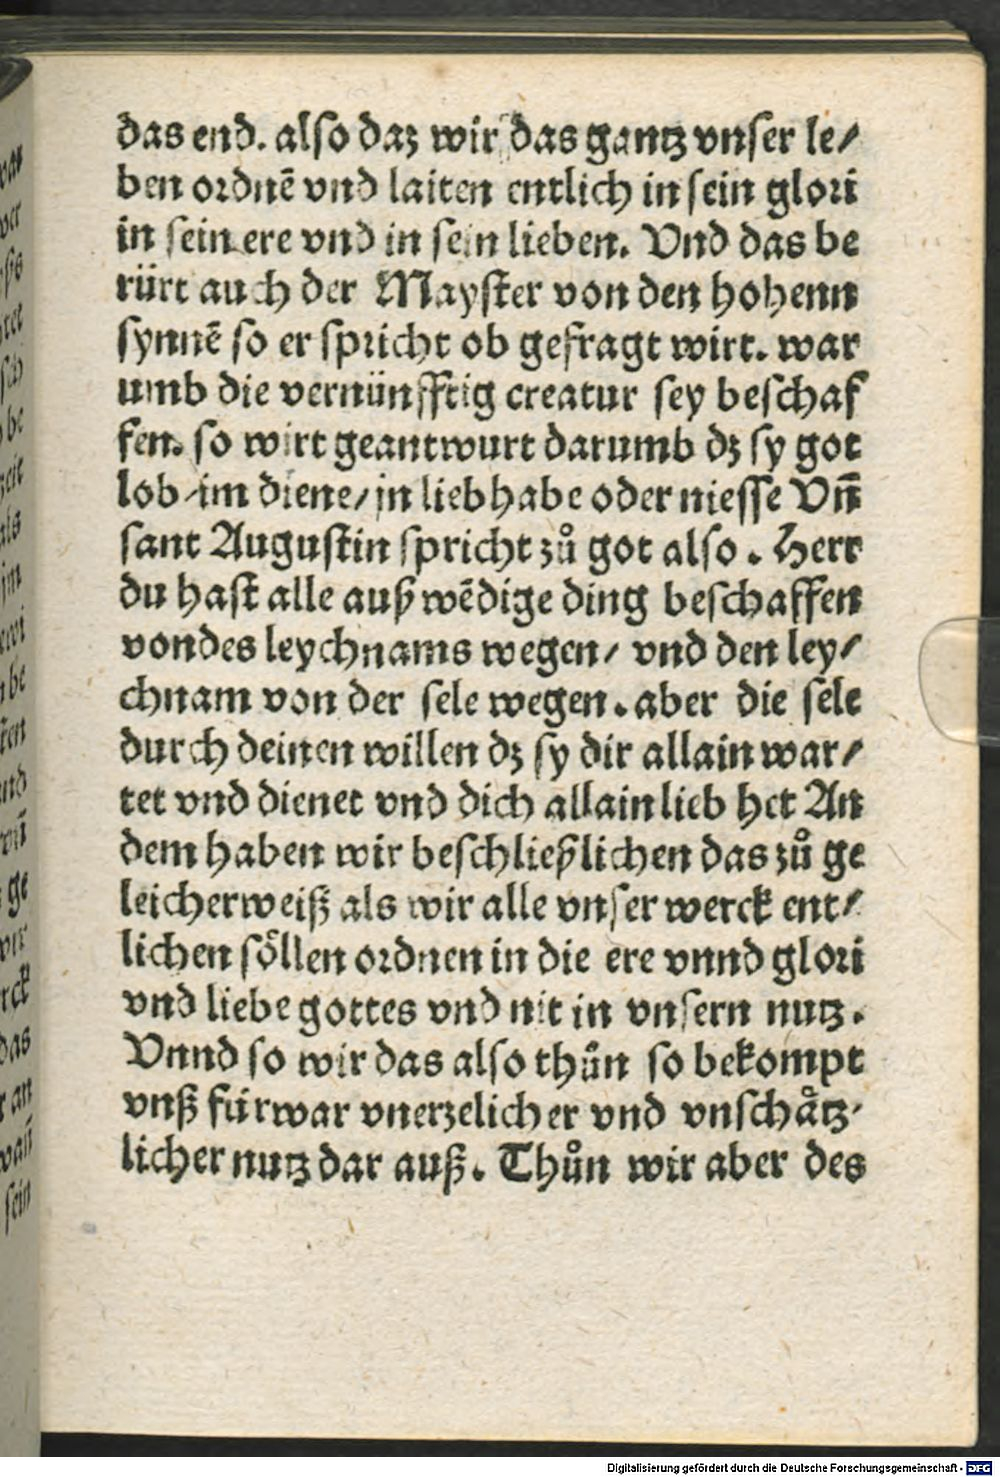 das end. also daz wir das gantz vnser le/
ben ordnē vnd laiten entlich in sein glori
in sein ere vnd in sein lieben. Vnd das be
rürt auch der Mayster von den hohenn
synnē so er spricht ob gefragt wirt. war
umb die vernünfftig creatur sey beschaf
fen. so wirt geantwurt darumb dz sy got
lob/im diene/in liebhabe oder niesse Vn̄
sant Augustin spricht zů got also. Herr
du hast alle außwēdige ding beschaffen
vondes leychnams wegen/ vnd den ley/
chnam von der sele wegen. aber die sele
durch deinen willen dz sy dir allain war/
tet vnd dienet vnd dich allain lieb het An
dem haben wir beschließlichen das zů ge
leicherweiß als wir alle vnser werck ent/
lichen söllen ordnen in die ere vnnd glori
vnd liebe gottes vnd nit in vnsern nutz.
Vnnd so wir das also thůn so bekompt
vnß fürwar vnerzelicher vnd vnschätz/
licher nutz dar auß. Thůn wir aber des
Digitalisierung gefördert durch die Deutsche Forschungsgemeinschaft - DFG